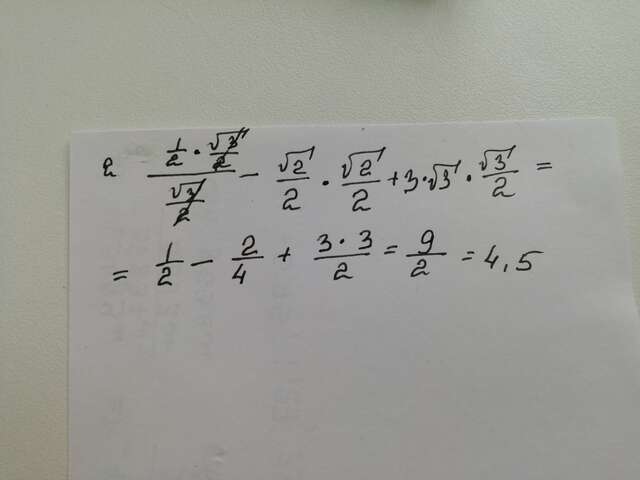 2 (1/2 · √3/2)/(√3/2) - √2/2 · √2/2 + 3·√3 · √3/2 =
= 1/2 - 2/4 + 3·3/2 = 9/2 = 4,5